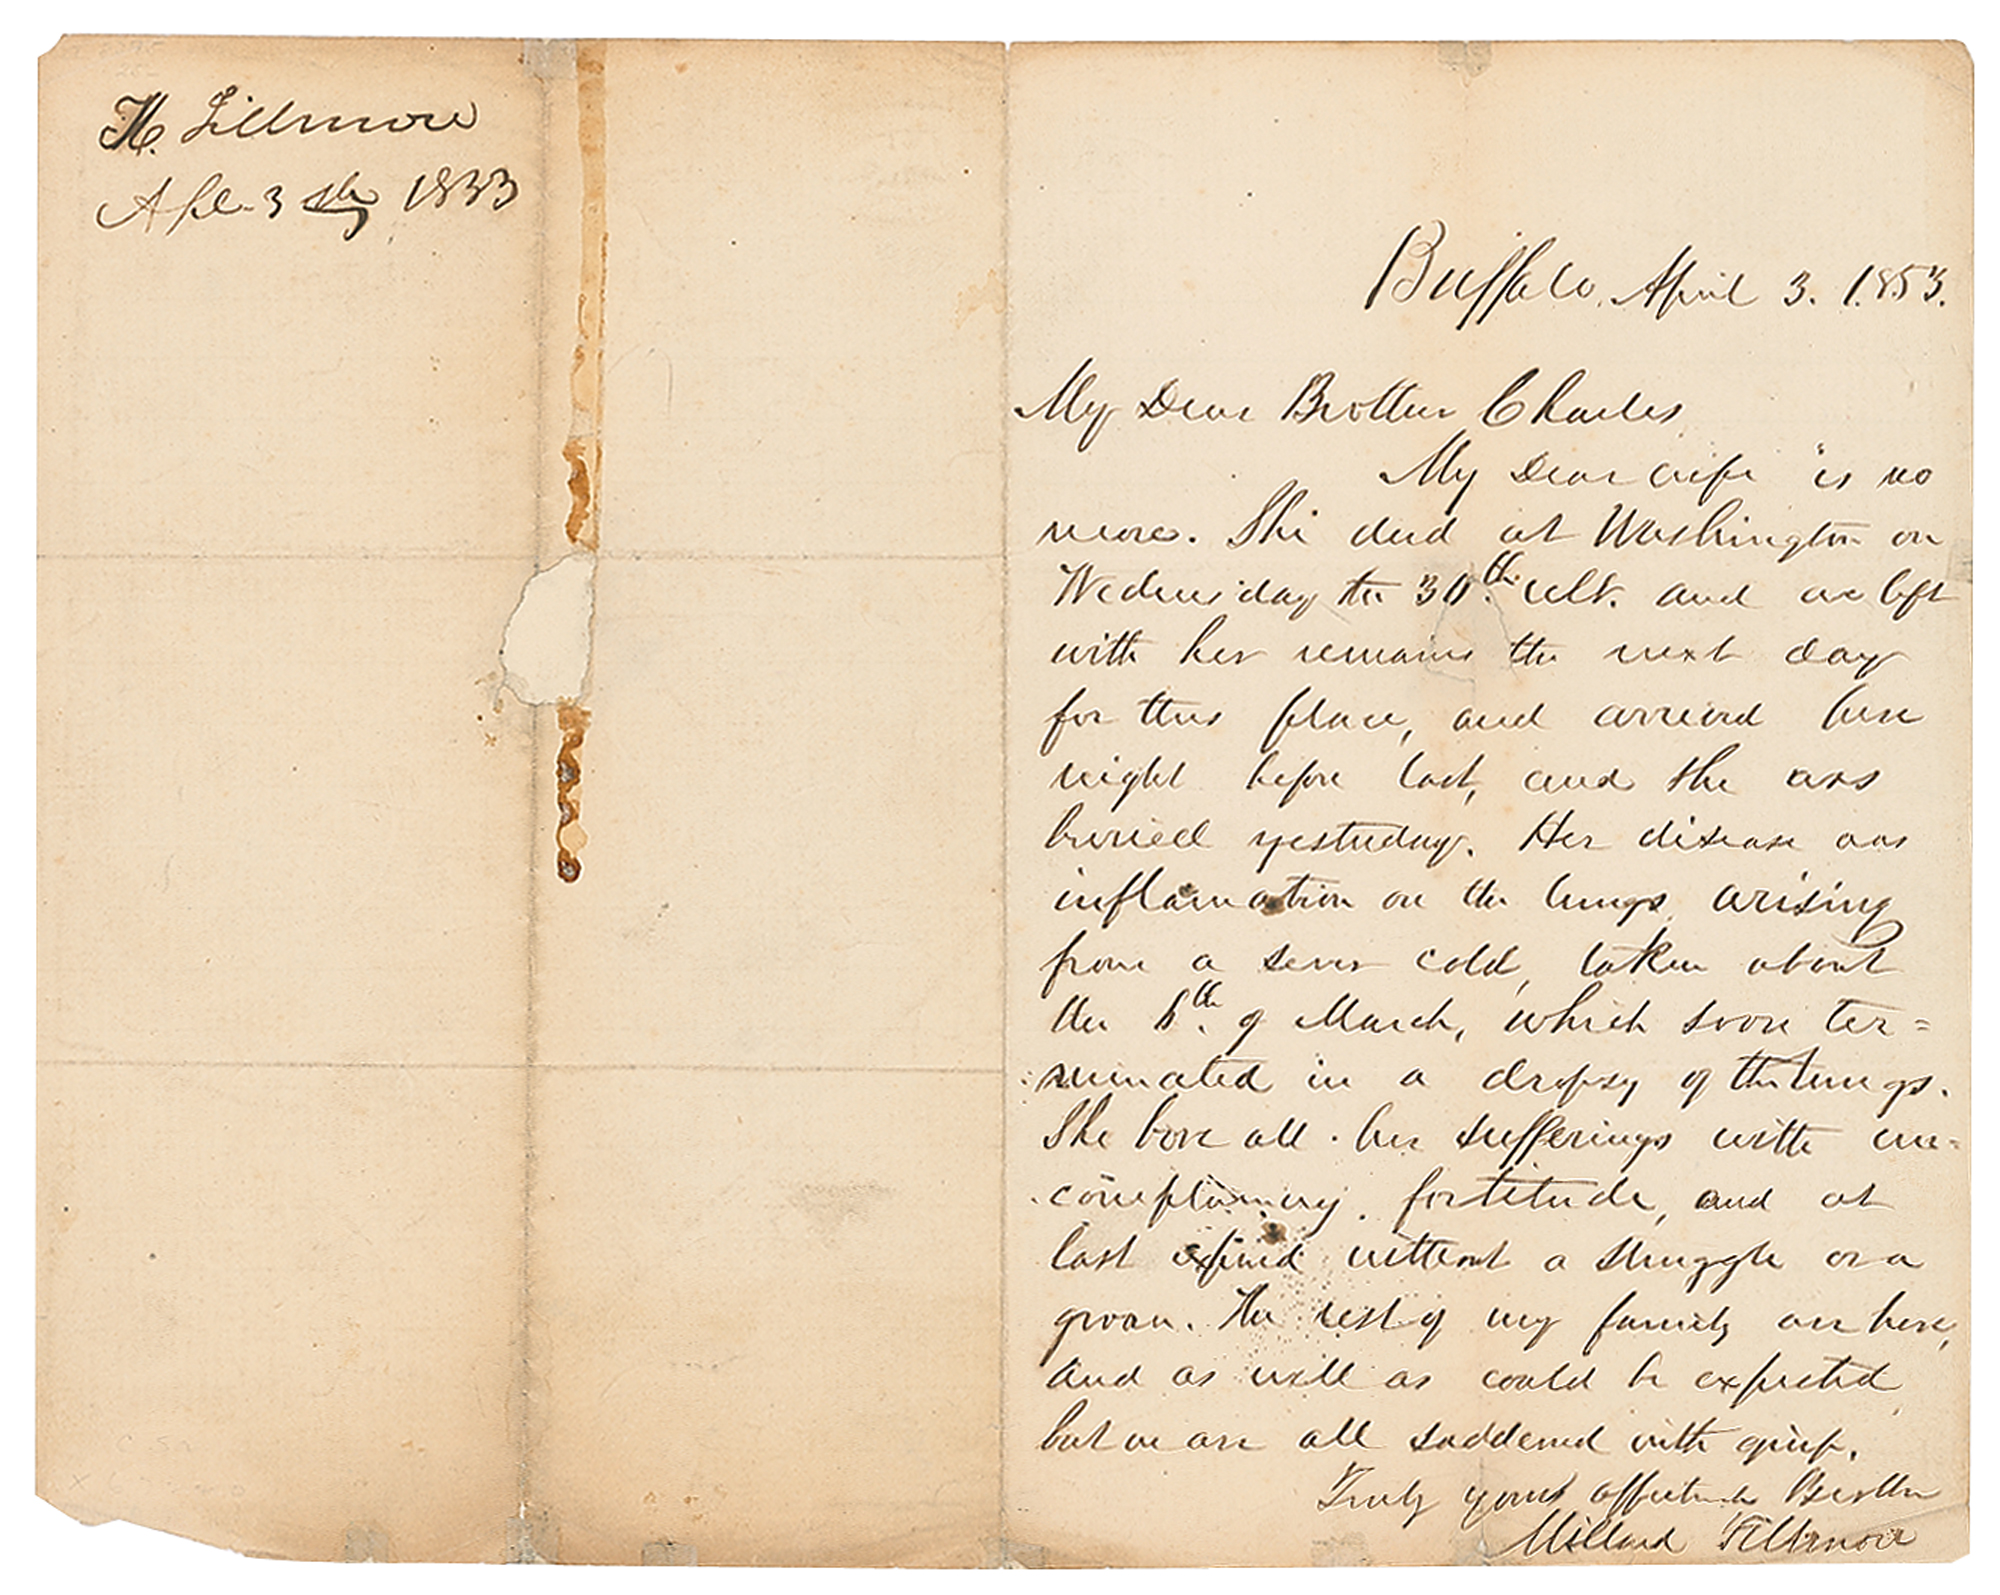 M. Fillmore
Apl. 3 1853
Buffalo, April 3. 1853.
My Dear Brother Charles
My Dear wife is no
more. She died at Washington on
Wednesday the 30th. ult. and we left
with her remains the next day
for this place, and arrived here
night before last, and she was
buried yesterday. Her disease was
inflamation on the lungs arising
from a sever cold, taken about
the of March, which soon ter=
minated in a dropsy of the lungs.
She bore all her sufferings with un=
complaining fortitude, and at
last expired without a struggle or a
groan. The rest of my family are here,
and as well as could be expected,
but we are all saddened with grief.
Truly your affectionate Brother
Millard Fillmore